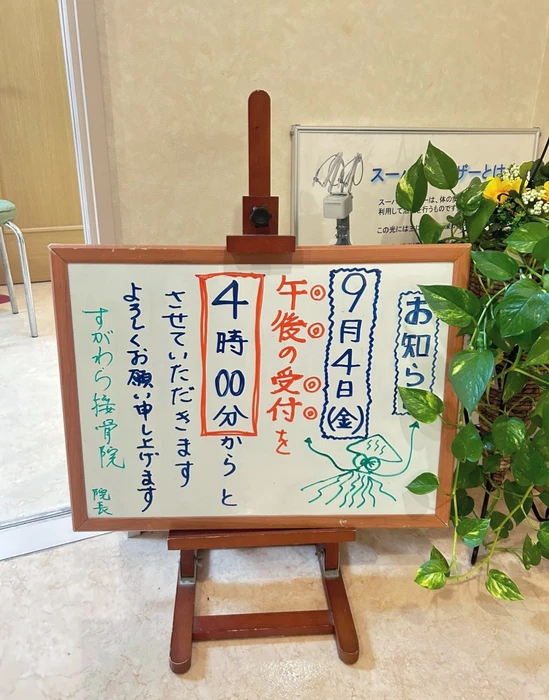 お知ら
9月4日(金)
午後の受付を
4時00分からと
させていただきます
よろしくお願い申し上げます
すがわら接骨院
院長
スーパー
ザーとは
スーパー
ーは、体の
利用して
を行うものです
この光には